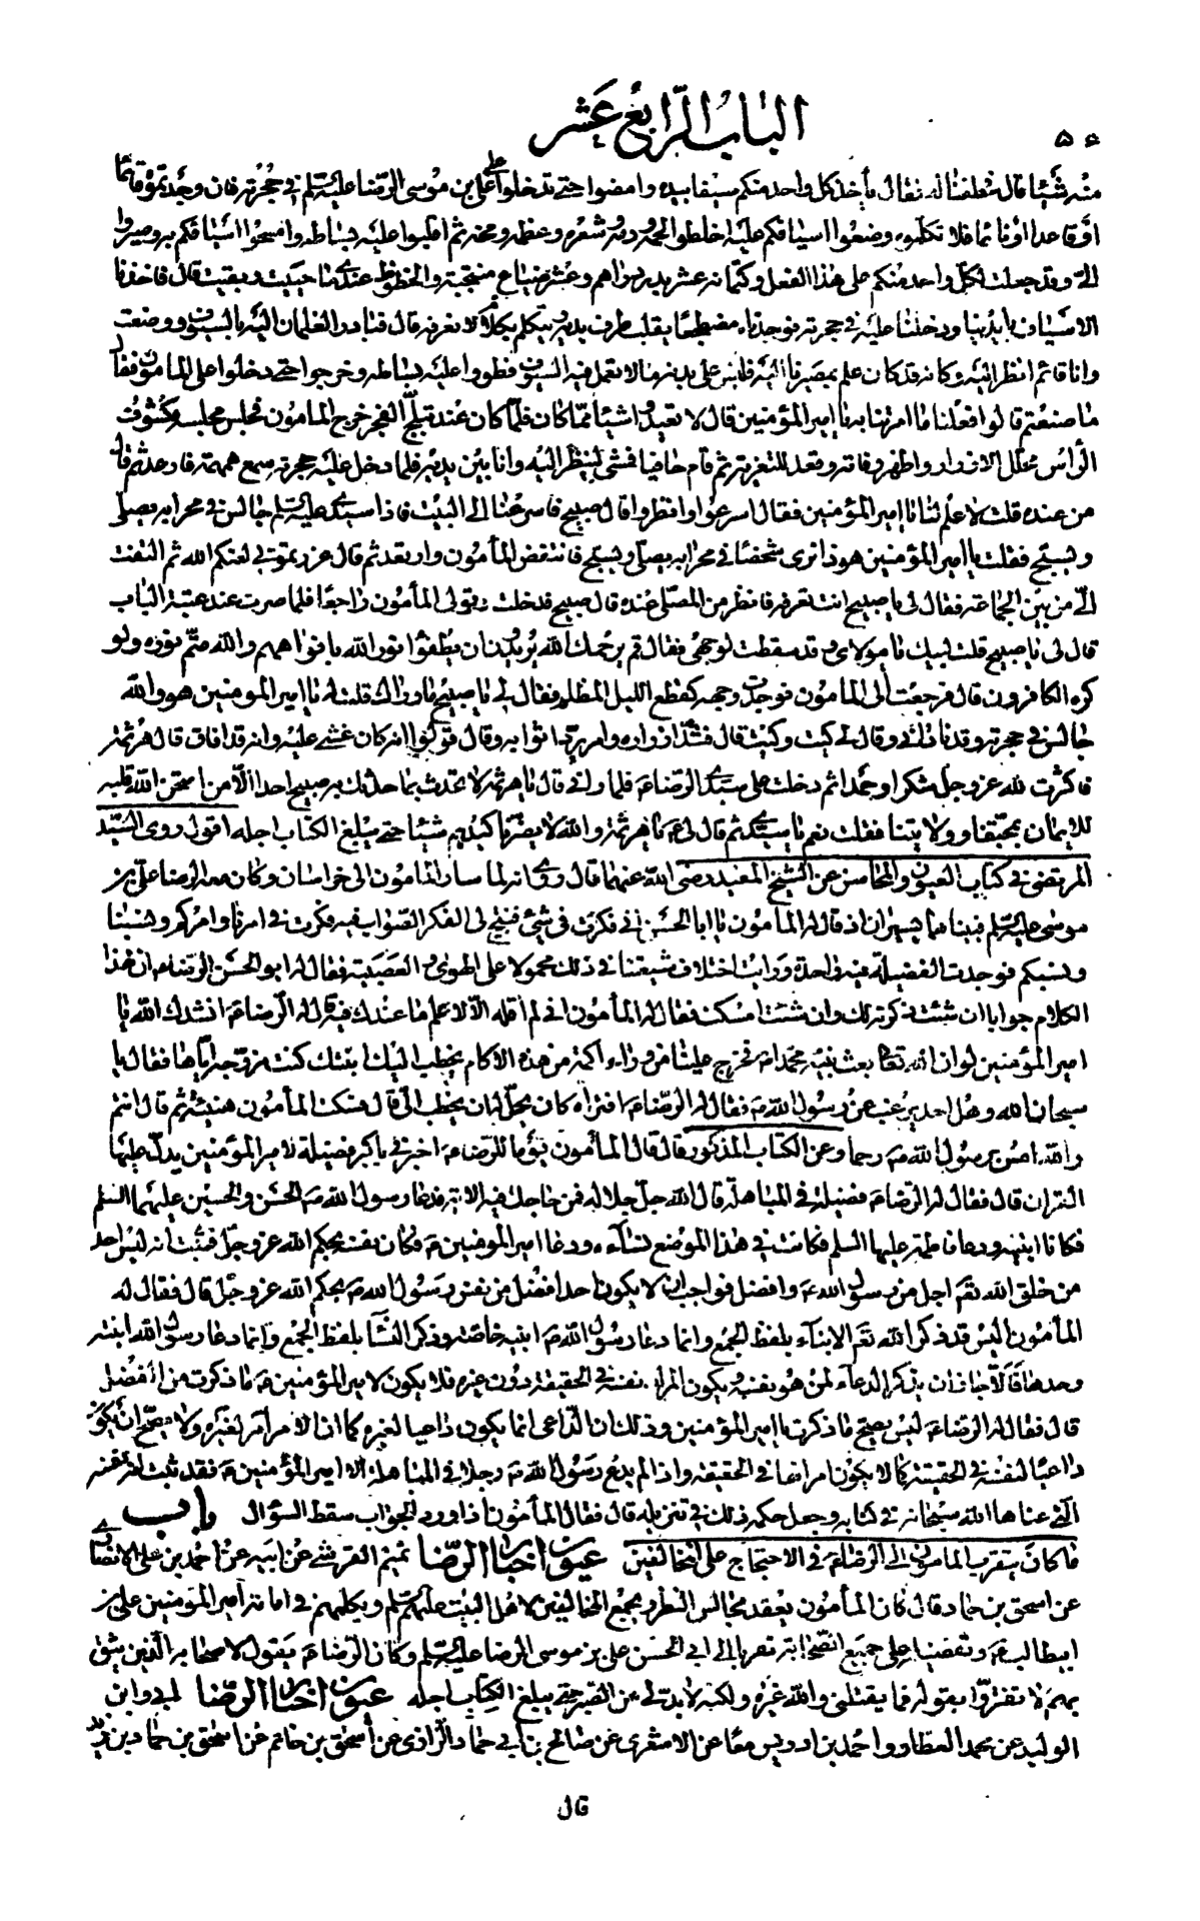 الباب الرابع عشر
۵۶
منه شيئا قال فحلفنا له فقال يأخذ كل واحد منكم سيفا بيده وامضوا حتى تدخلوا على علي بن موسى الرضا عليه السلم في حجرته فان وجدتموه قائما
او قاعدا او نائما فلا تكلموه وضعوا اسيافكم عليه اخلطوا لحمه ودمه وشعره وعظمه ومخه ثم اقلبوا عليه بساطه وامسحوا اسيافكم به وصيروا
الي وقد جعلت لكل واحد منكم على هذا الفعل وكتمانه عشر بدر دراهم وعشر ضياع منتجبة والحظوظ عندي ما حييت وبقيت قال فاخذنا
الاسياف بايدينا ودخلنا عليه في حجرته فوجدناه مضطجعا يقلب طرف يديه ويتكلم بكلام لا نعرفه قال فبادر الغلمان اليه بالسيوف ووضعت
وانا قائم انظر اليه وكانه قد كان علم بمصيرنا اليه فلبس على بدنه ما لا تعمل فيه السيوف فطووا عليه بساطه وخرجوا حتى دخلوا على المامون فقال
ما صنعتم قالوا فعلنا ما امرتنا به يا امير المؤمنين قال لا تعيدوا شيئا مما كان فلما كان عند تبلج الفجر خرج المامون فجلس مجلسه مكشوف
الراس محلل الازرار واظهر وفاته وقعد للتعزية ثم قام حافيا فمشى لينظر اليه وانا بين يديه فلما دخل عليه حجرته سمع همهمة فارعد ثم قال
من عنده قلت لا علم لنا يا امير المؤمنين فقال اسرعوا وانظروا قال صبيح فاسرعنا الى البيت فاذا سيدي عليه السلم جالس في محرابه يصلي
ويسبح فقلت يا امير المؤمنين هو ذا نرى شخصا في محرابه يصلي ويسبح فانتفض المأمون وارتعد ثم قال غررتموني لعنكم الله ثم التفت
الي من بين الجماعة فقال لي يا صبيح انت تعرفه فانظر من المصلي عنده قال صبيح فدخلت وتولى المأمون راجعا فلما صرت عند عتبة الباب
قال لي يا صبيح قلت لبيك يا مولاي وقد سقطت لوجهي فقال قم يرحمك الله يريدون ان يطفئوا نور الله بافواههم والله متم نوره ولو
كره الكافرون قال فرجعت الى المأمون فوجدت وجهه كقطع الليل المظلم فقال لي يا صبيح ما وراك قلت له يا امير المومنين هو والله
جالس في حجرته وقد ناداني وقال لي كيت وكيت قال فشد ازراره وامر برد اثوابه وقال قولوا انه كان غشي عليه وانه قد افاق قال هرثمة
فاكثرت لله عز وجل شكرا وحمدا ثم دخلت على سيدي الرضا ع فلما راني قال يا هرثمة لا تحدث بما حدثك به صبيح احدا الا من امتحن الله قلبه
للايمان بمحبتنا وولايتنا فقلت نعم يا سيدي ثم قال لي ع يا هرثمة والله لا يضرنا كيدهم شيئا حتى يبلغ الكتاب اجله اقول روى السيد
المرتضى في كتاب العيون والمحاسن عن الشيخ المفيد رضي الله عنهما قال روي انه لما سار المامون الى خراسان وكان معه الرضا علي بن
موسى عليه السلم فبينا هما يسيران اذ قال له المأمون يا ابا الحسن اني فكرت في شيء فنتج لي الفكر الصواب فيه فكرت في امرنا وامركم ونسبنا
ونسبكم فوجدت الفضيلة فيه واحدة ورايت اختلاف شيعتنا في ذلك محمولا على الهوى والعصبية فقال له ابو الحسن الرضا ع ان لهذا
الكلام جوابا ان شئت ذكرته لك وان شئت امسكت فقال له المأمون اني لم اقله الا لاعلم ما عندك فيه قال له الرضا ع انشدك الله يا
امير المؤمنين لو ان الله تعالى بعث نبيه محمدا ص فخرج علينا من وراء اكمة من هذه الاكام يخطب اليك ابنتك كنت مزوجه اياها فقال يا
سبحان الله وهل احد يرغب عن رسول الله ص فقال له الرضا ع افتراه كان يحل له ان يخطب الي قال فسكت المأمون هنيئة ثم قال انتم
والله امس برسول الله ص رحما وعن الكتاب المذكور قال قال المأمون يوما للرضا ع اخبرني باكبر فضيلة لامير المؤمنين يدل عليها
القران قال فقال له الرضا ع فضيلة في المباهلة قال الله جل جلاله فمن حاجك فيه الاية فدعا رسول الله ص الحسن والحسين عليهما السلم
فكانا ابنيه ودعا فاطمة عليها السلم فكانت في هذا الموضع نساءه ودعا امير المومنين ع فكان نفسه بحكم الله عز وجل فثبت انه ليس احد
من خلق الله تعم اجل من رسول الله ص وافضل فواجب ان لا يكون احد افضل من نفس رسول الله ص بحكم الله عز وجل قال فقال له
المأمون اليس قد ذكر الله تعم الابناء بلفظ الجمع وانما دعا رسول الله ص ابنيه خاصة وذكر النساء بلفظ الجمع وانما دعا رسول الله ابنته
وحدها فالا جاز ان يذكر الدعاء لمن هو نفسه ويكون المراد نفسه في الحقيقة دون غيره فلا يكون لامير المؤمنين ع ما ذكرت من الفضل
قال فقال له الرضا ع ليس يصح ما ذكرت يا امير المؤمنين وذلك ان الداعي انما يكون داعيا لغيره كما ان الامر امر لغيره ولا يصح ان يكون
داعيا لنفسه في الحقيقة كما لا يكون امرا لها في الحقيقة واذا لم يدع رسول الله ص رجلا في المباهلة الا امير المؤمنين ع فقد ثبت انه نفسه
التي عناها الله سبحانه في كتابه وجعل حكمه ذلك في تنزيله قال فقال المأمون اذا ورد الجواب سقط السؤال باب
ما كان يتقرب المامون الى الرضا ع في الاحتجاج على المخالفين عيون اخبار الرضا تميم القرشي عن ابيه عن احمد بن علي الانصاري
عن اسحق بن حماد قال كان المأمون يعقد مجالس النظر ويجمع المخالفين لاهل البيت عليهم السلم ويكلمهم في امامة امير المؤمنين علي بن
ابيطالب ع وتفضيله على جميع الصحابة تقربا الى ابي الحسن علي بن موسى الرضا عليه السلم وكان الرضا ع يقول لاصحابه الذين يثق
بهم لا تغتروا بقوله فما يقتلني والله غيره ولكنه لا بد لي من الصبر حتى يبلغ الكتاب اجله عيون اخبار الرضا ابي وابن
الوليد عن محمد العطار واحمد بن ادريس معا عن الاشعري عن صالح بن ابي حماد الرازي عن اسحق بن حاتم عن اسحق بن حماد بن زيد
قال